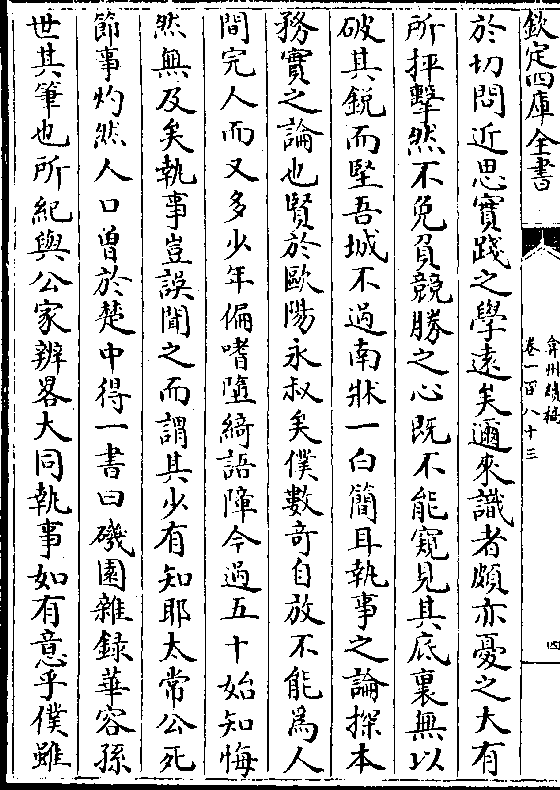 欽定四庫全書
弇州續稿
卷一百八十三
四
於切問近思實踐之學遠矣邇來識者頗亦憂之大有
所抨擊然不免負競勝之心既不能窺見其底裏無以
破其鋭而堅吾城不過南牀一白簡耳執事之論探本
務實之論也賢於歐陽永叔矣僕數竒自放不能爲人
間完人而又多少年偏嗜墮綺語障今過五十始知悔
然無及矣執事豈誤聞之而謂其少有知耶太常公死
節事灼然人口曽於楚中得一書曰磯園雜録華容孫
世其筆也所紀與公家辨畧大同執事如有意乎僕雖